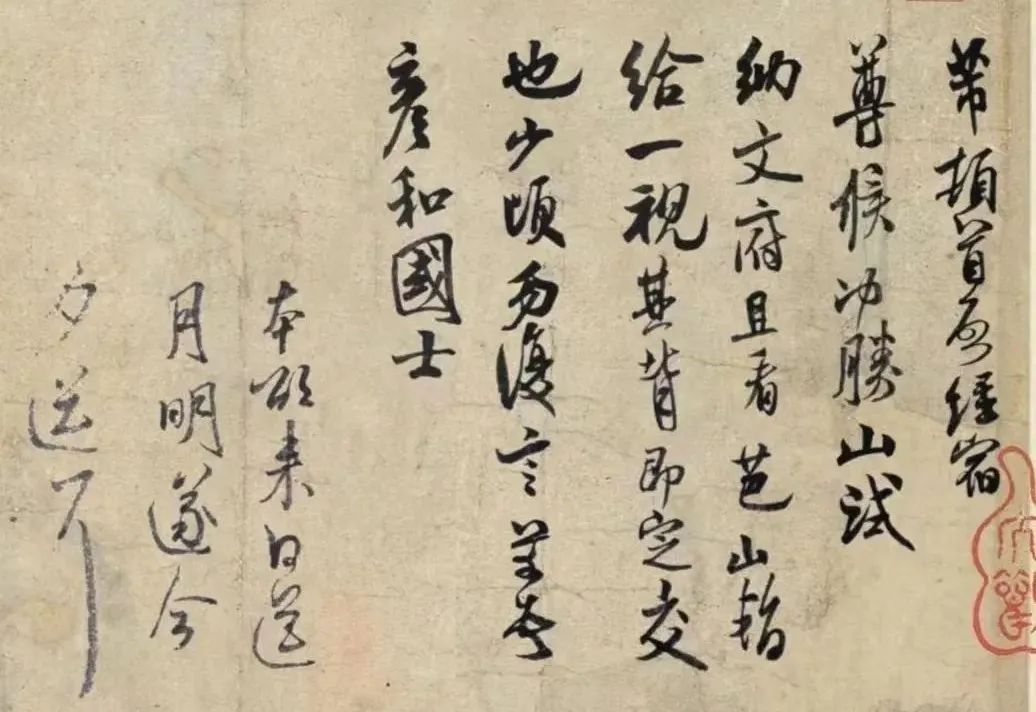 芾頓首啓經宿
尊候沖勝山試
納文府且看芭山暫
給一視其背即定交
也少頃勿復言芾頓首
彦和國士
本欲來日送
月明遂今
夕送耳